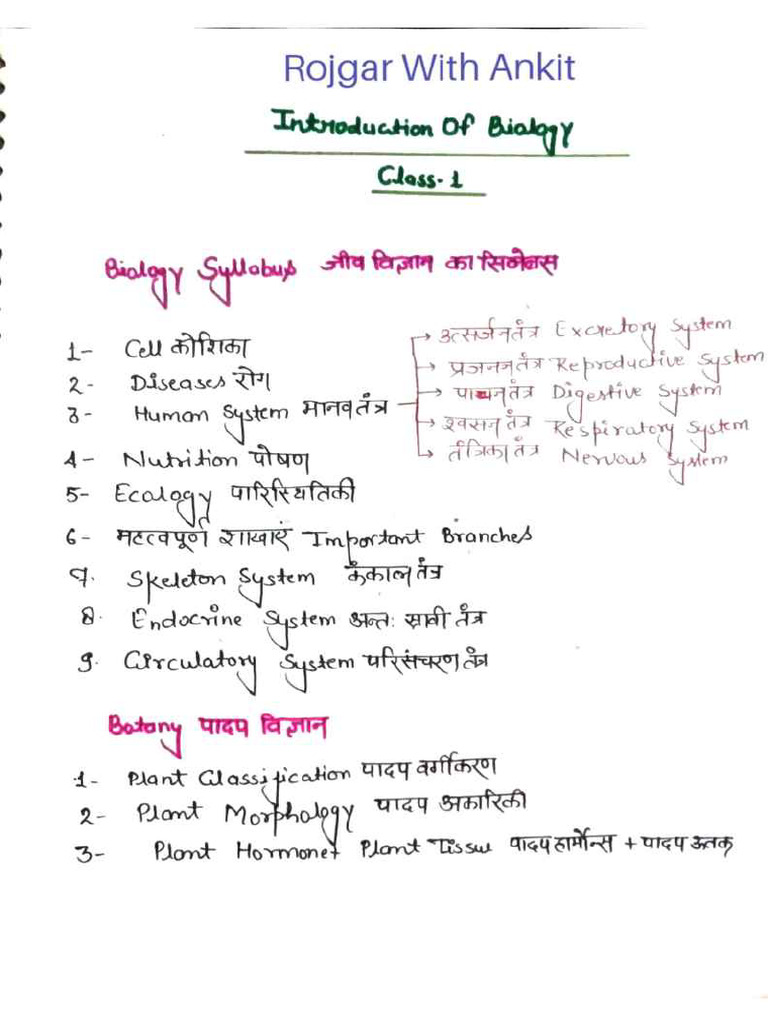 Rojgar With Ankit
Introduction Of Biology
Class-1
Biology Syllabus जीव विज्ञान का सिलेबस
1- Cell कोशिका
2- Diseases रोग
3- Human System मानव तंत्र
→ उत्सर्जन तंत्र Excretory System
→ प्रजनन तंत्र Reproductive System
→ पाचन तंत्र Digestive System
→ श्वसन तंत्र Respiratory System
→ तंत्रिका तंत्र Nervous System
4- Nutrition पोषण
5- Ecology पारिस्थितिकी
6- महत्वपूर्ण शाखाएं Important Branches
7. Skeleton System कंकाल तंत्र
8. Endocrine System अन्तः स्रावी तंत्र
9. Circulatory System परिसंचरण तंत्र
Botany पादप विज्ञान
1- Plant Classification पादप वर्गीकरण
2- Plant Morphology पादप अकारिकी
3- Plant Hormone+ Plant Tissue पादप हार्मोन्स + पादप ऊतक